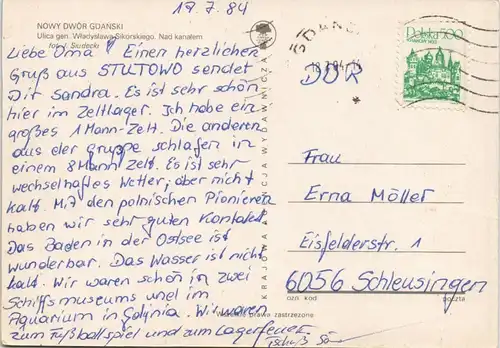 17.7.84
NOWY DWÓR GDAŃSKI
Ulica gen. Władysława Sikorskiego. Nad kanałem
fot. J. Siudecki
Liebe Oma! Einen herzlichen
Gruß aus STUTOWO sendet
Dir Sandra. Es ist sehr schön
hier im Zeltlager. Ich habe ein
großes 1 Mann-Zelt. Die anderen
aus der gruppe schlafen in
einem 8 Mann Zelt. Es ist sehr
wechselhaftes Wetter, aber nicht
kalt. Mit den polnischen Pionieren
haben wir sehr guten Kontakt.
Das Baden in der Ostsee ist
wunderbar. Das Wasser ist nicht
kalt. Wir waren schön in zwei
Schiffsmuseums und im
Aquarium in Gdynia. Wir waren
zum Fußballspiel und zum Lagerfeuer.
Tschüß
KRAJOWA AGENCJA WYDAWNICZA
prawa zastrzeżone
18.7.84
DDR
Polska 5.00
Frau
Erna Möller
Eisfelderstr. 1
6056 Schleusingen
ozn. kod
poczta